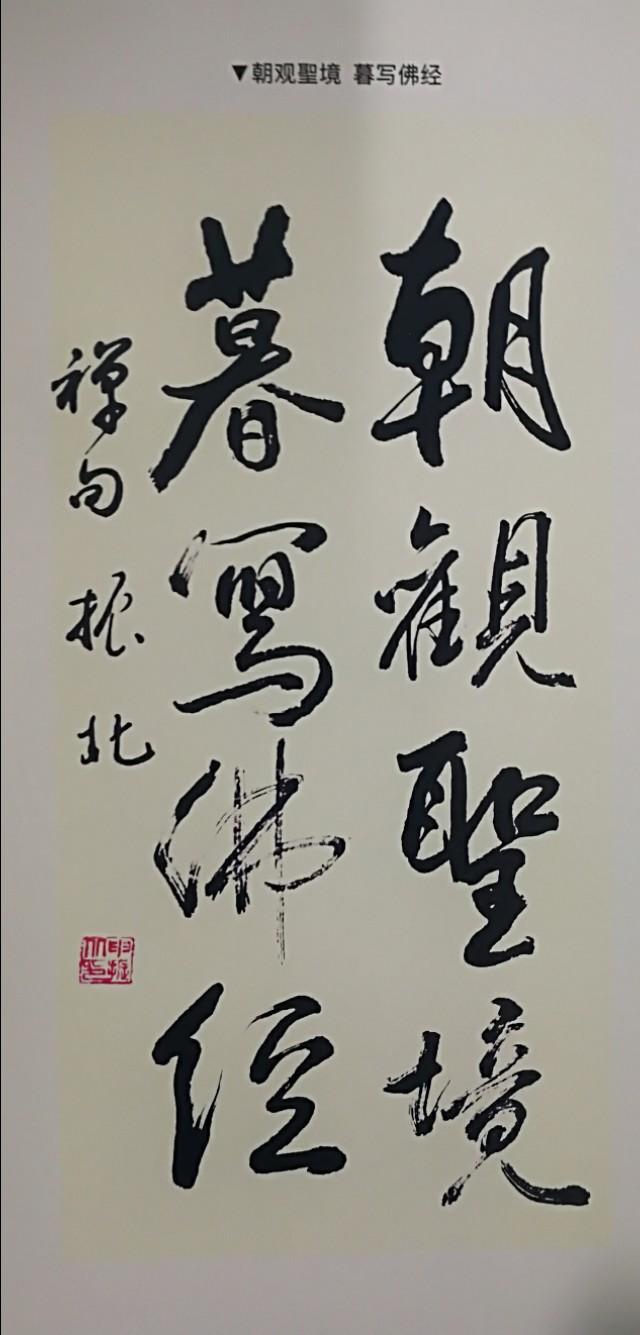 ▼朝观聖境 暮写佛经
朝觀聖境
暮寫佛經
禅句 振北